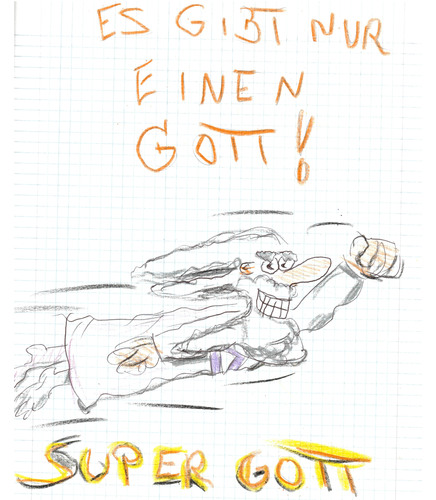 ES GIBT NUR
EINEN
GOTT!
SUPER GOTT